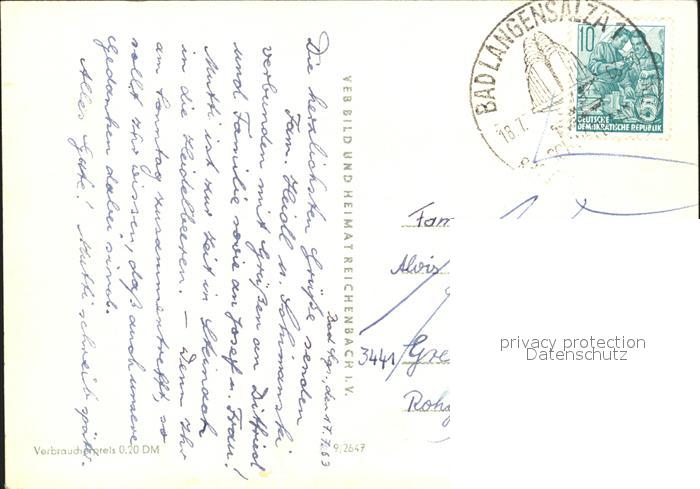 Bad Lgs., den 17.7.63
Die herzlichsten Grüße senden
Fam. Heidl u. Schimanski
verbunden mit Grüßen an Dittfried
und Familie sowie an Josef u. Frau!
Mutti ist zur Zeit in Steinach
in die Heidelbeeren. – Wenn Ihr
am Sonntag zusammentrefft, so
sollt Ihr wissen, daß auch unsere
Gedanken dabei sind.
Alles Gute! Mutti schreibt später.
VEB BILD UND HEIMAT REICHENBACH I. V.
Verbraucherpreis 0,20 DM
9/2647
BAD LANGENSALZA
18.7.
10
DEUTSCHE
DEMOKRATISCHE REPUBLIK
Fam
Alois
3441 Gre
privacy protection
Datenschutz